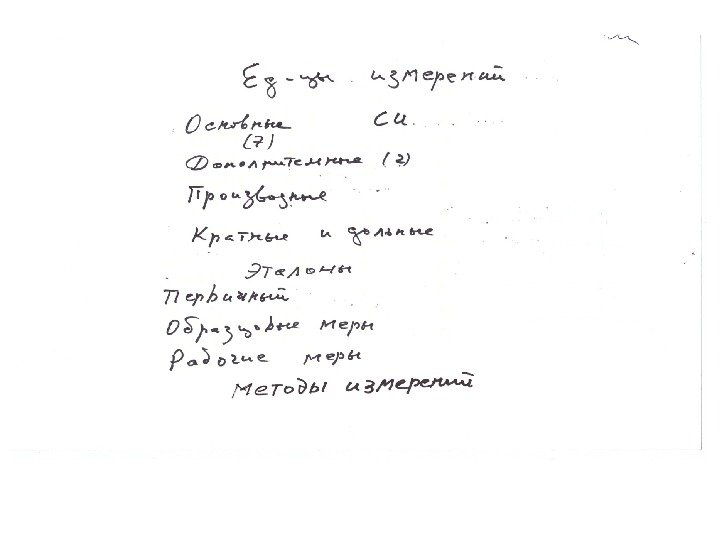 Ед-цы измерений
Основные СИ
(7)
Дополнительные (2)
Производные
Кратные и дольные
Эталоны
Первичный
Образцовые меры
Рабочие меры
Методы измерений